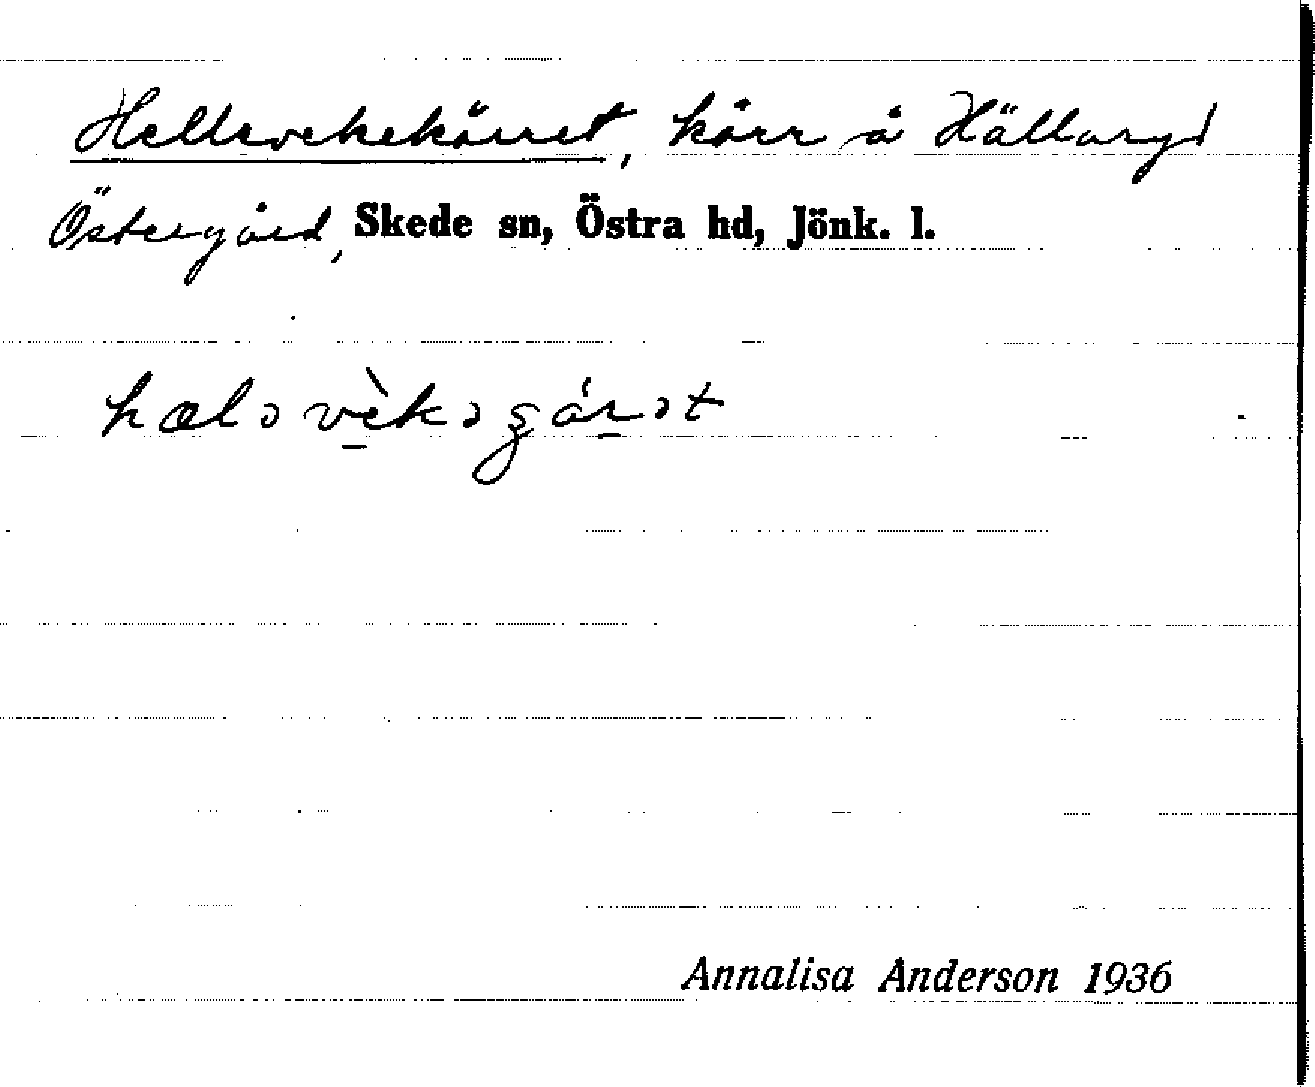 Hellevekekärret, kärr å Hällaryd
Östergård, Skede sn, Östra hd, Jönk. l.
hæləvèkəgárət
Annalisa Anderson 1936